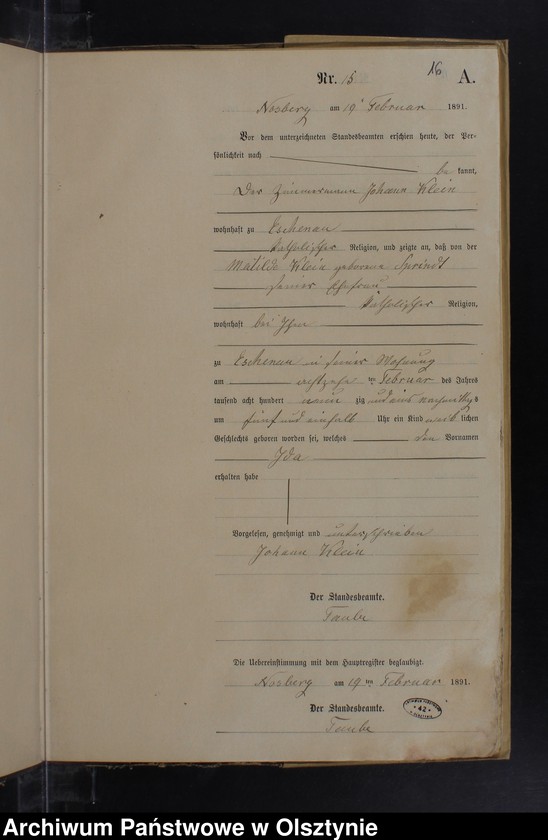 16
Nr. 15 A.
Nosberg am 19ᵗ Februar 1891.
Vor dem unterzeichneten Standesbeamten erschien heute, der Per-
sönlichkeit nach
be kannt,
Der Zimmermann Johann Klein
wohnhaft zu Eschenau
katholischer Religion, und zeigte an, daß von der
Matilde Klein geborene
seiner Ehefrau
katholischer Religion,
wohnhaft bei Ihm
zu Eschenau in seiner Wohnung
am achtzehn ten Februar des Jahres
tausend acht hundert neun zig und eins nachmittags
um fünf und einhalb Uhr ein Kind weib lichen
Geschlechts geboren worden sei, welches den Vornamen
Ida
erhalten habe
Vorgelesen, genehmigt und unterschrieben
Johann Klein
Der Standesbeamte.
Taube
Die Uebereinstimmung mit dem Hauptregister beglaubigt.
Nosberg am 19 ten Februar 1891.
Der Standesbeamte.
Taube
42
Archiwum Państwowe w Olsztynie